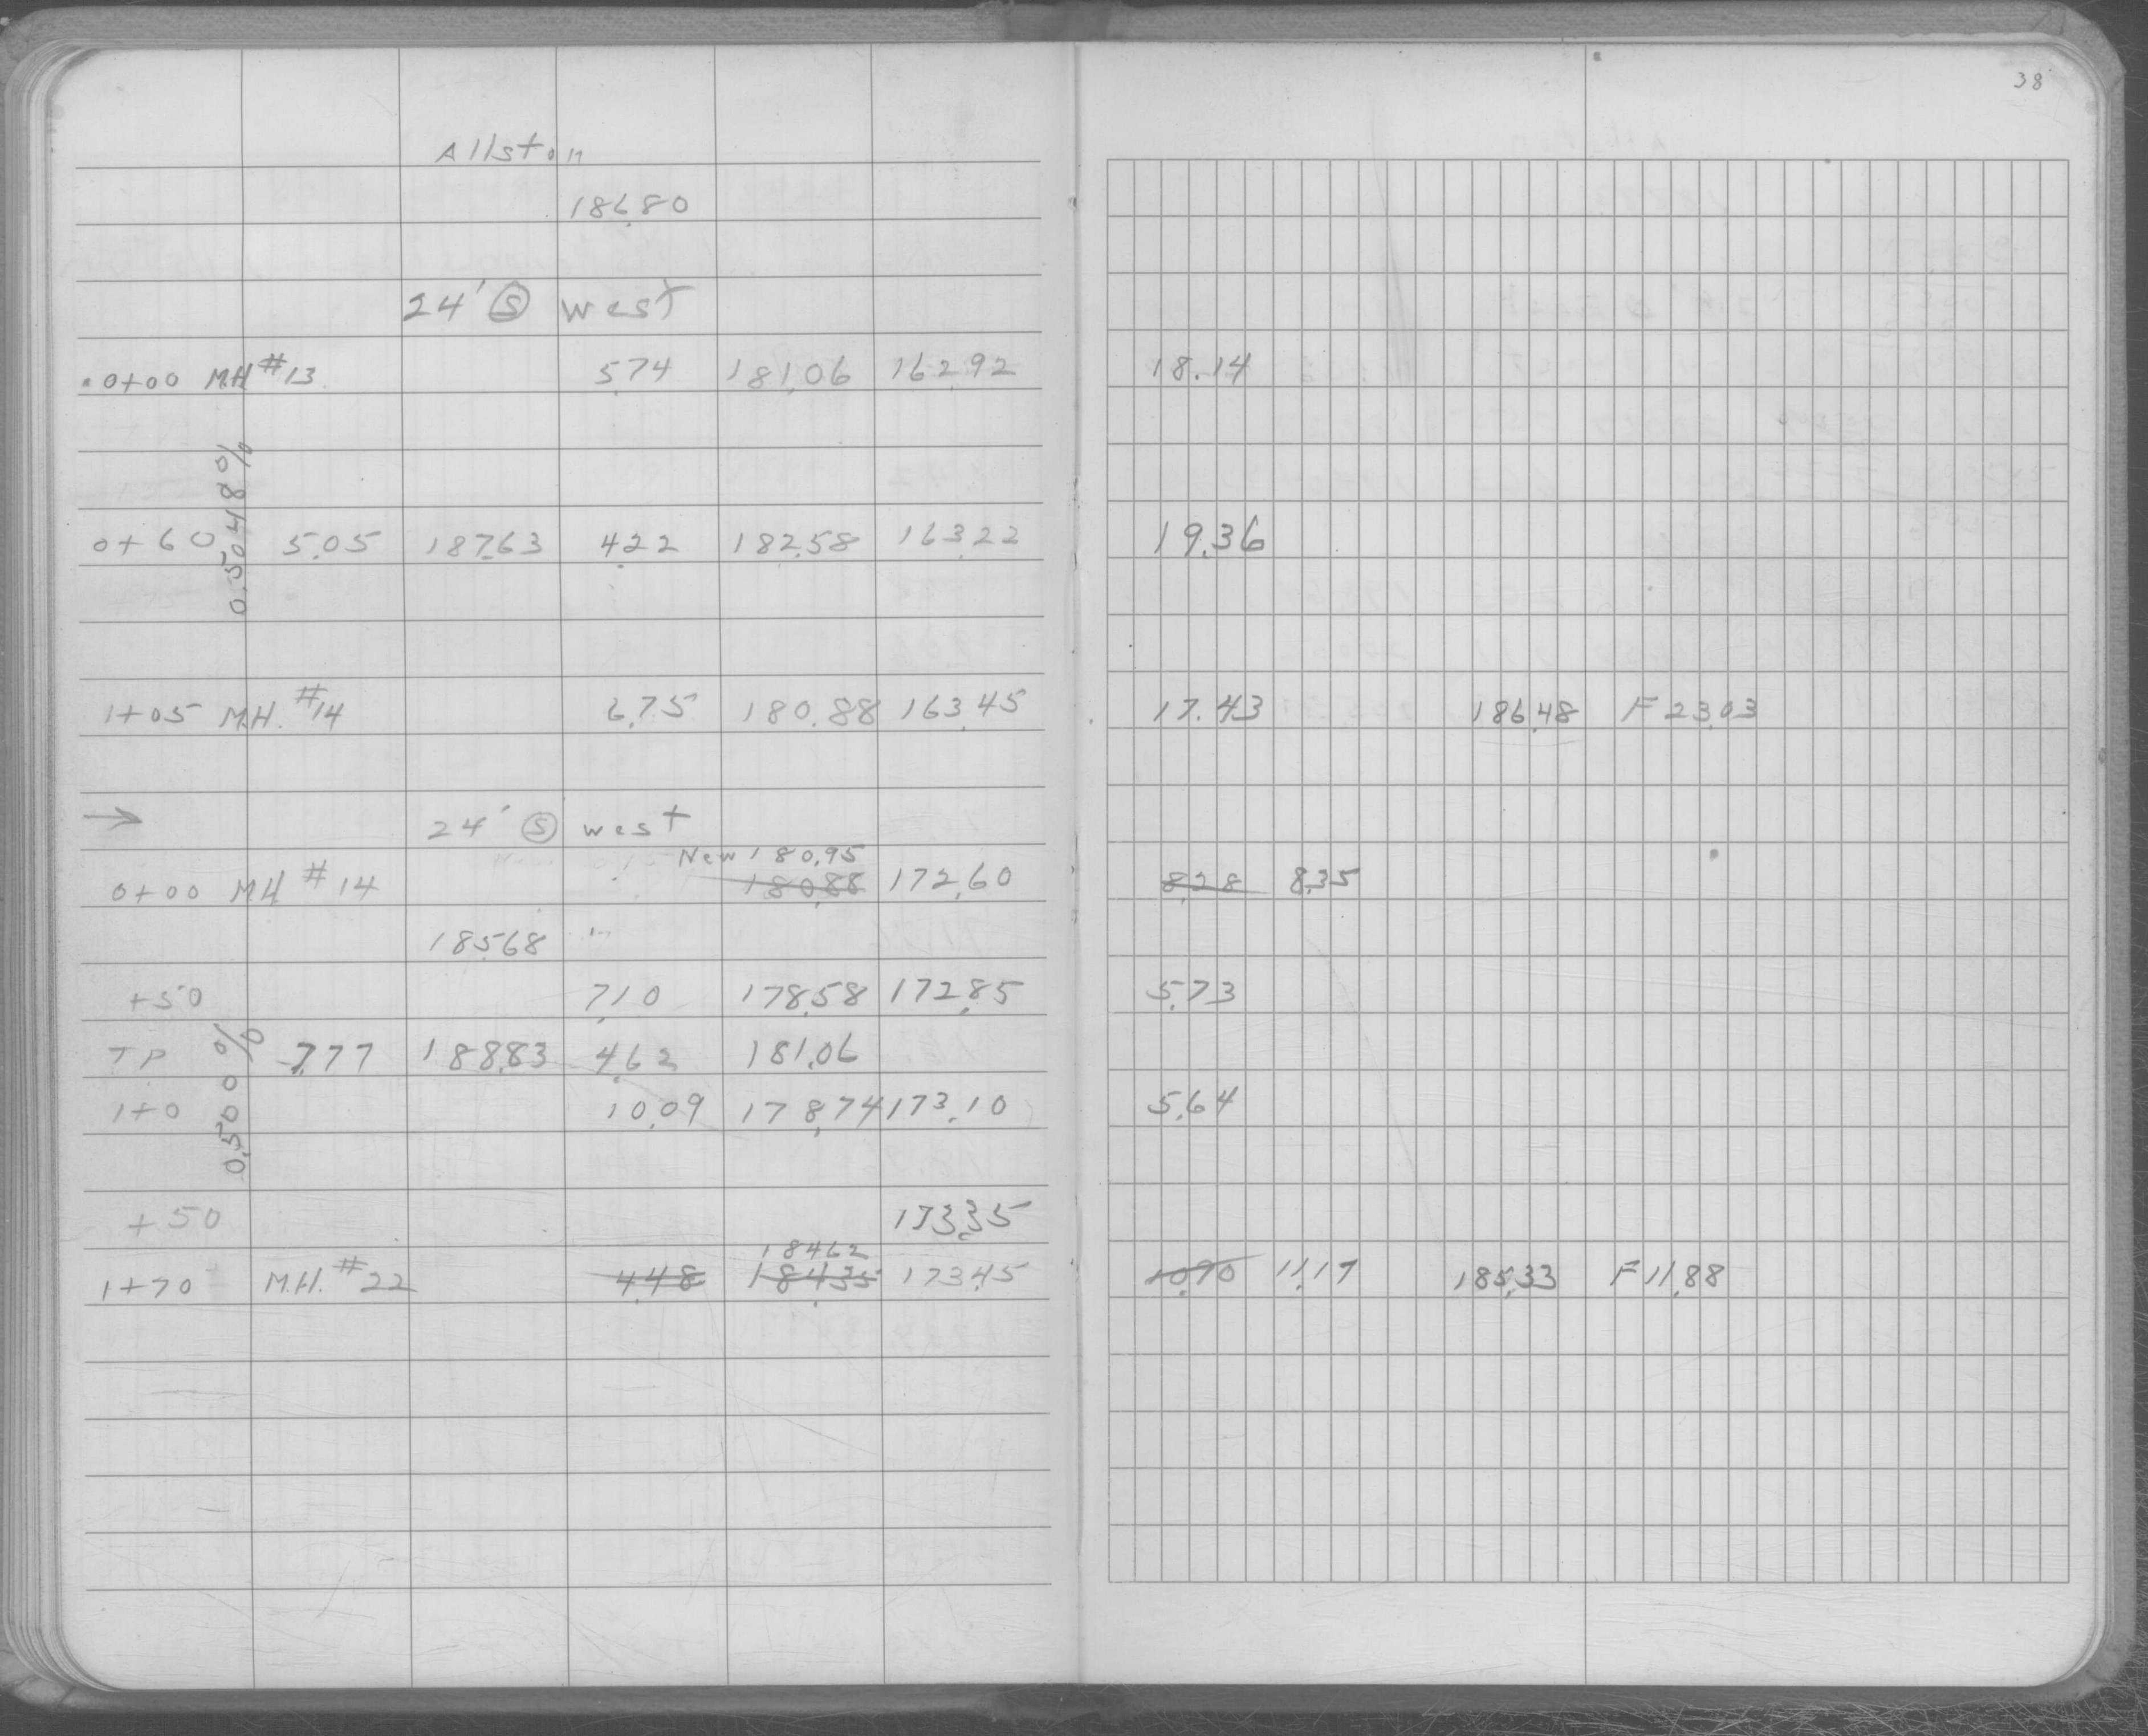 38
Allston
186.80
24' Ⓢ West
0+00 M.H #13 5.74 181.06 162.92 18.14
0.5048%
0+60 5.05 187.63 4.22 182.58 163.22 19.36
1+05 M.H. #14 6.75 180.88 163.45 17.43 186.48 F 23.03
→ 24' Ⓢ west
New 180.95
0+00 M.H #14 180.88 172.60 8.28 8.35
185.68 "
+50 7.10 178.58 172.85 5.73
TP 7.77 188.83 4.62 181.06
0.500%
1+0 10.09 178.74 173.10 5.64
+50 173.35
184.62
1+70 M.H. #22 4.48 184.35 173.45 10.90 11.17 185.33 F 11.88